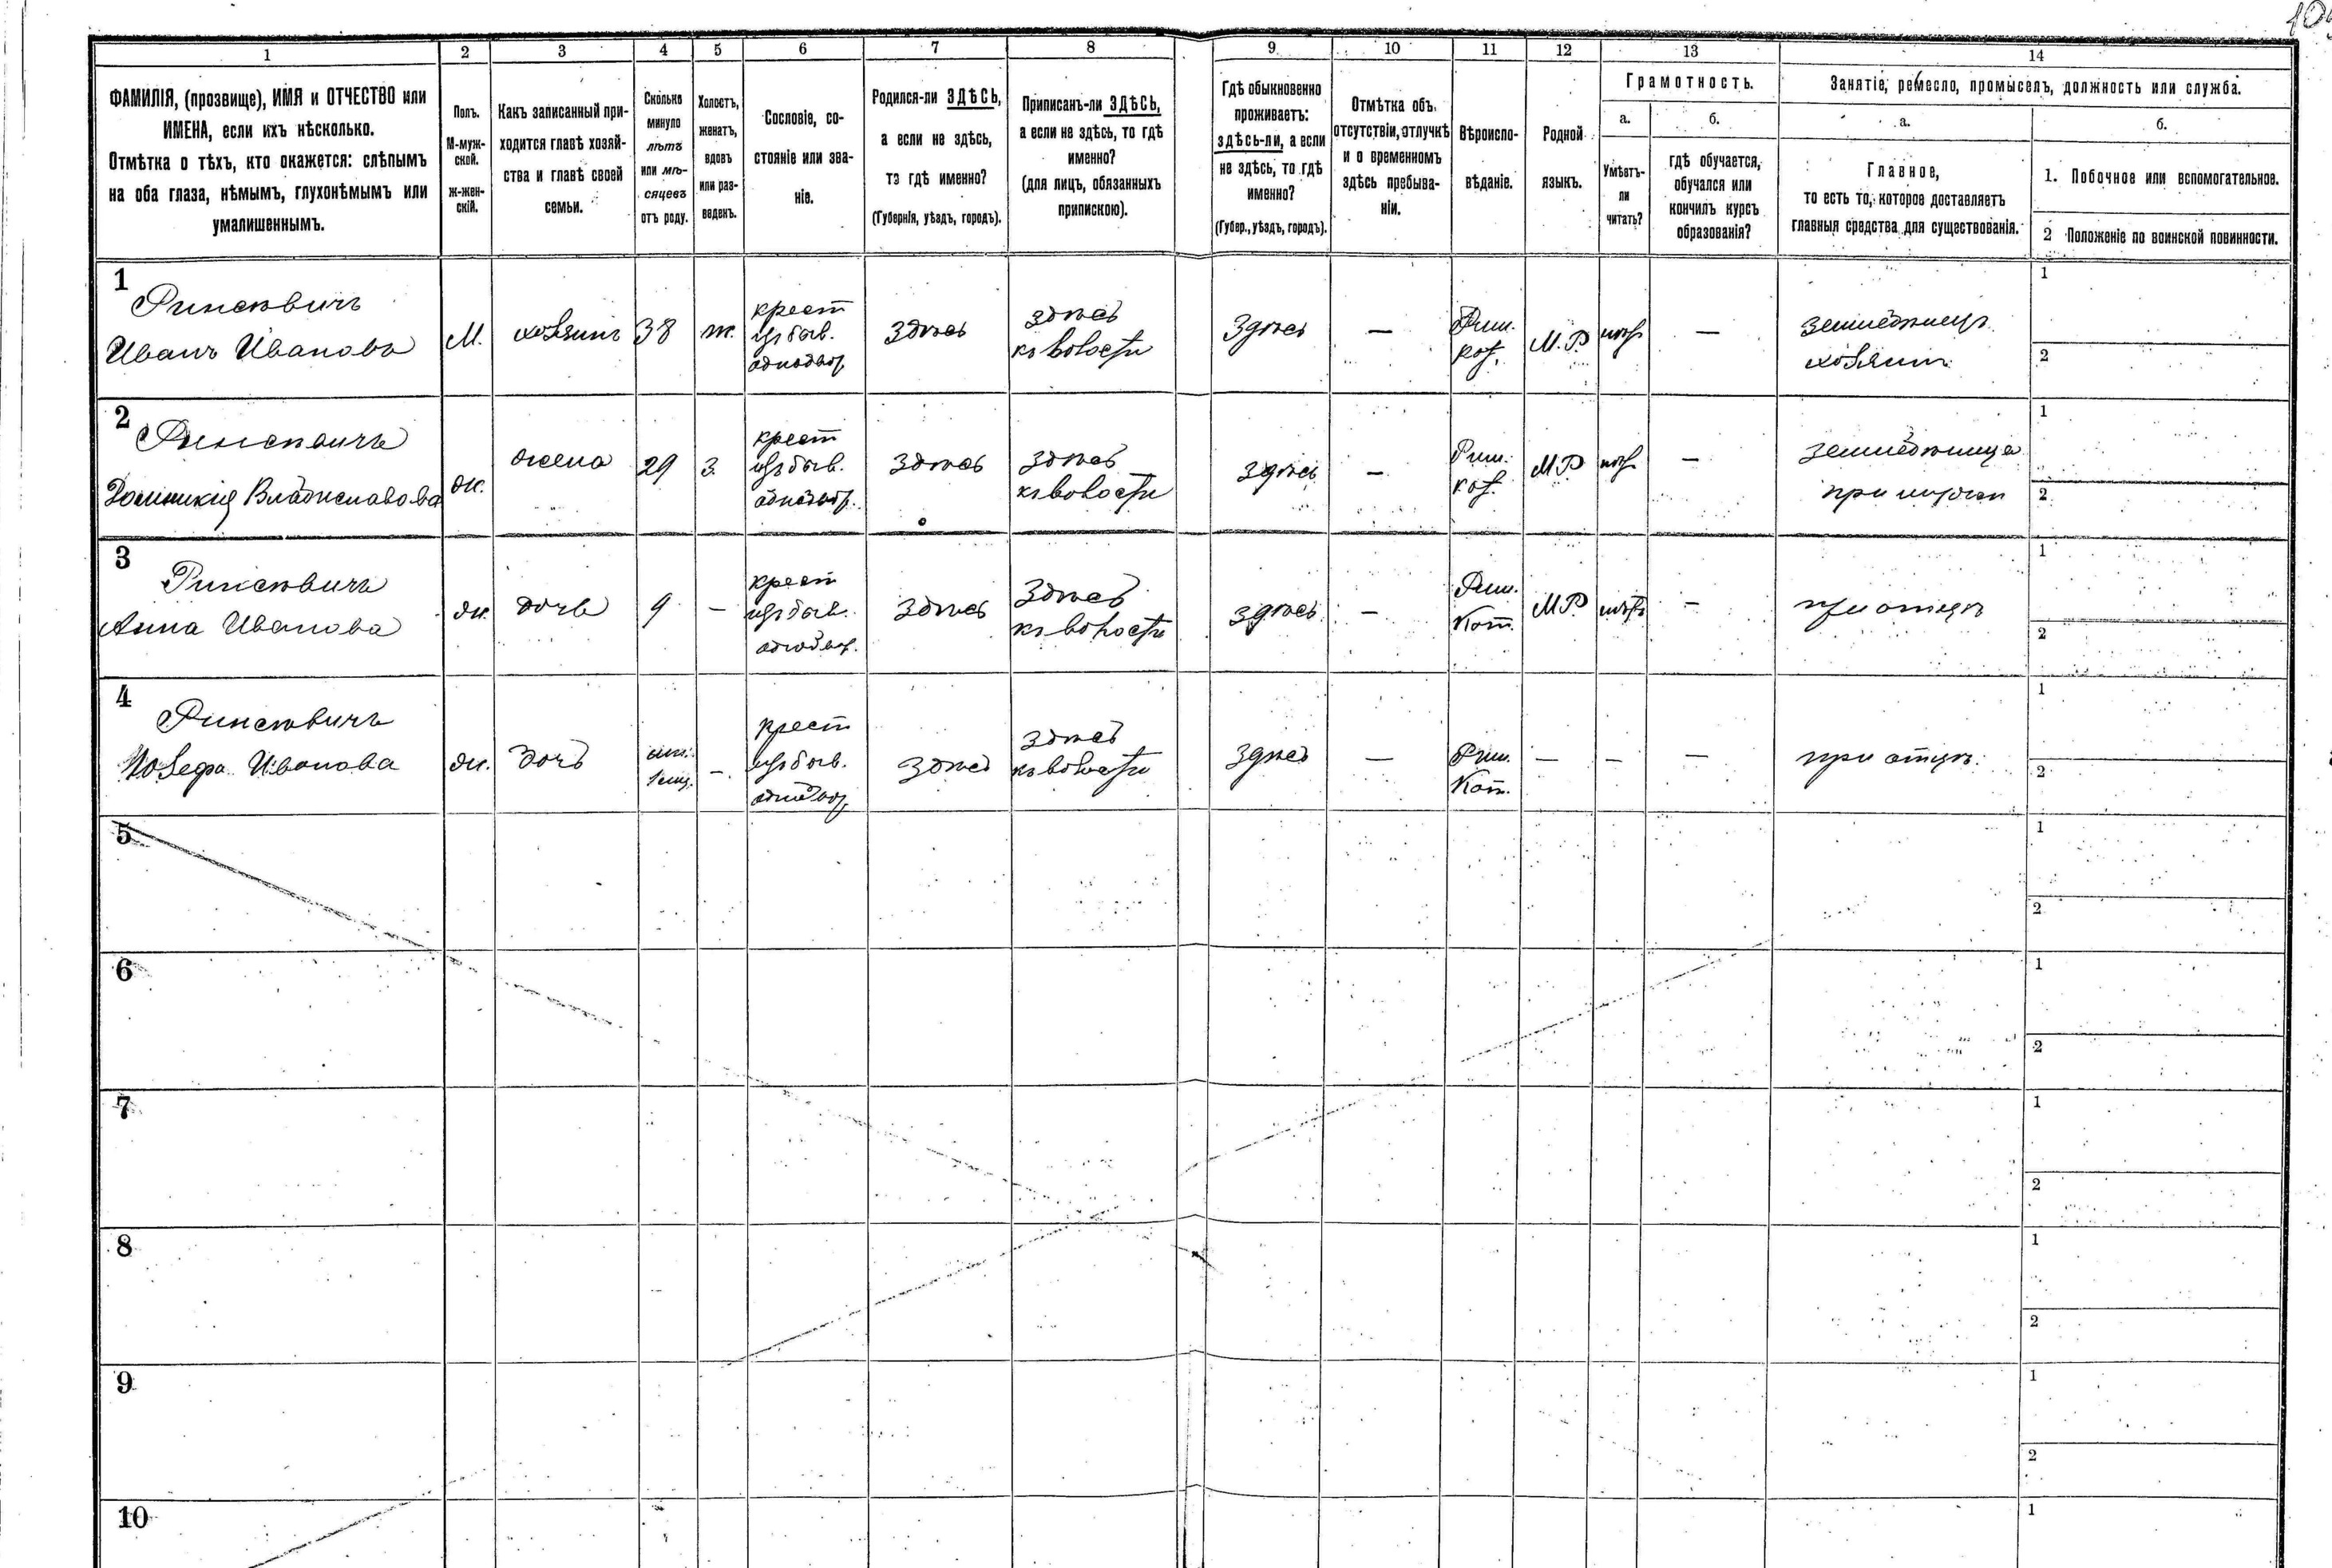 1
2
3
4
5
6
7
8
9
10
11
12
13
14
ФАМИЛІЯ, (прозвище), ИМЯ и ОТЧЕСТВО или
ИМЕНА, если ихъ нѣсколько.
Отмѣтка о тѣхъ, кто окажется: слѣпымъ
на оба глаза, нѣмымъ, глухонѣмымъ или
умалишеннымъ.
Полъ.
М-муж-
ской.
ж-жен-
скій.
Какъ записанный при-
ходится главѣ хозяй-
ства и главѣ своей
семьи.
Сколько
минуло
лѣтъ
или мѣ-
сяцевъ
отъ роду.
Холостъ,
женатъ,
вдовъ
или раз-
веденъ.
Сословіе, со-
стояніе или зва-
ніе.
Родился-ли ЗДѢСЬ,
а если не здѣсь,
то гдѣ именно?
(Губернія, уѣздъ, городъ).
Приписанъ-ли ЗДѢСЬ,
а если не здѣсь, то гдѣ
именно?
(для лицъ, обязанныхъ
припискою).
Гдѣ обыкновенно
проживаетъ:
здѣсь-ли, а если
не здѣсь, то гдѣ
именно?
(Губер., уѣздъ, городъ).
Отмѣтка объ
отсутствіи, отлучкѣ
и о временномъ
здѣсь пребыва-
ніи.
Вѣроиспо-
вѣданіе.
Родной
языкъ.
Грамотность.
а.
Умѣетъ-
ли
читать?
б.
гдѣ обучается,
обучался или
кончилъ курсъ
образованія?
Занятіе, ремесло, промыселъ, должность или служба.
а.
Главное,
то есть то, которое доставляетъ
главныя средства для существованія.
б.
1. Побочное или вспомогательное.
2 Положеніе по воинской повинности.
1
Иванъ Иванова
М.
хозяинъ
38
ж.
крест
изъ быв.
однодвор.
здѣсь
здѣсь
къ волости
Здѣсь
—
Рим.
кат.
М.Р.
нѣтъ
—
земледѣлецъ
хозяинъ
1
2
2
Доминикия Владиславова
ж.
жена
29
з.
крест
изъ быв.
однодвор.
здѣсь
здѣсь
къ волости
здѣсь
—
Рим.
кат.
М.Р
нѣтъ
—
при мужѣ
1
2
3
Анна Иванова
ж.
дочь
9
—
крест
изъ быв.
однодвор.
здѣсь
здѣсь
къ волости
здѣсь
—
Рим.
Кат.
М.Р
нѣтъ
—
при отцѣ
1
2
4
Юзефа Иванова
ж.
дочь
—
крест
изъ быв.
однодвор.
здѣсь
здѣсь
къ волости
Здѣсь
—
Рим.
Кат.
—
—
—
при отцѣ.
1
2
5
1
2
6
1
2
7
1
2
8
1
2
9
1
2
10
1